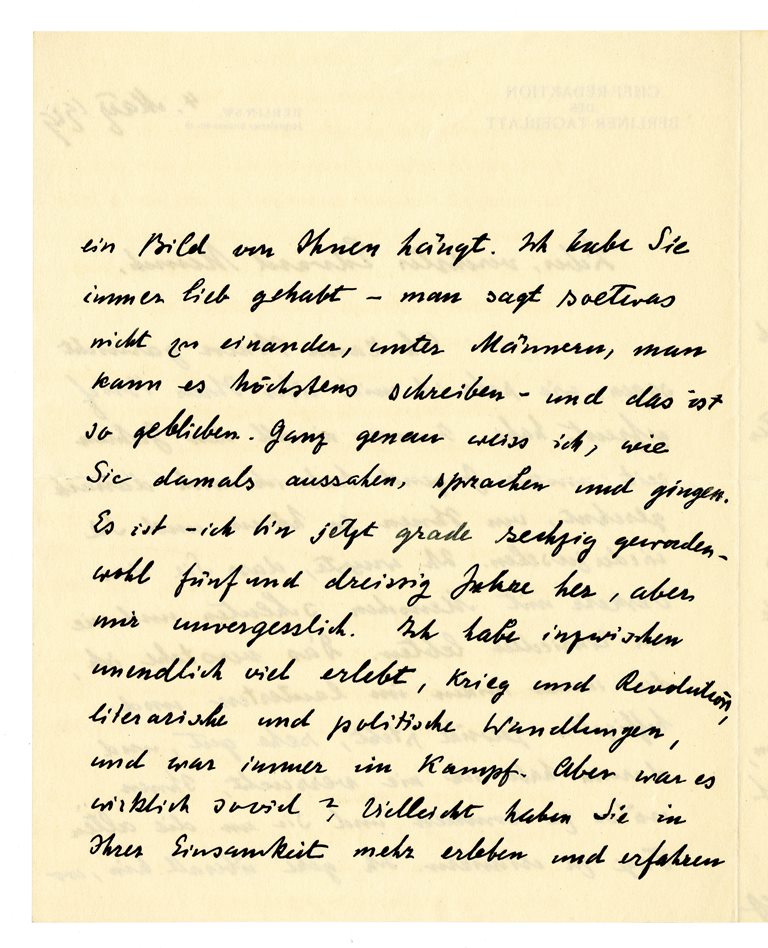 ein Bild von Ihnen hängt. Ich habe Sie
immer lieb gehabt – man sagt soetwas
nicht zu einander, unter Männern, man
kann es höchstens schreiben – und das ist
so geblieben. Ganz genau weiss ich, wie
Sie damals aussahen, sprachen und gingen.
Es ist – ich bin jetzt grade sechzig geworden –
wohl fünf und dreissig Jahre her, aber
mir unvergesslich. Ich habe inzwischen
unendlich viel erlebt, Krieg und Revolution,
literarische und politische Wandlungen,
und war immer im Kampf. Aber war es
wirklich soviel? Vielleicht haben Sie in
Ihrer Einsamkeit mehr erleben und erfahren
CHEF-REDAKTION
DES
BERLINER TAGEBLATT
BERLIN SW